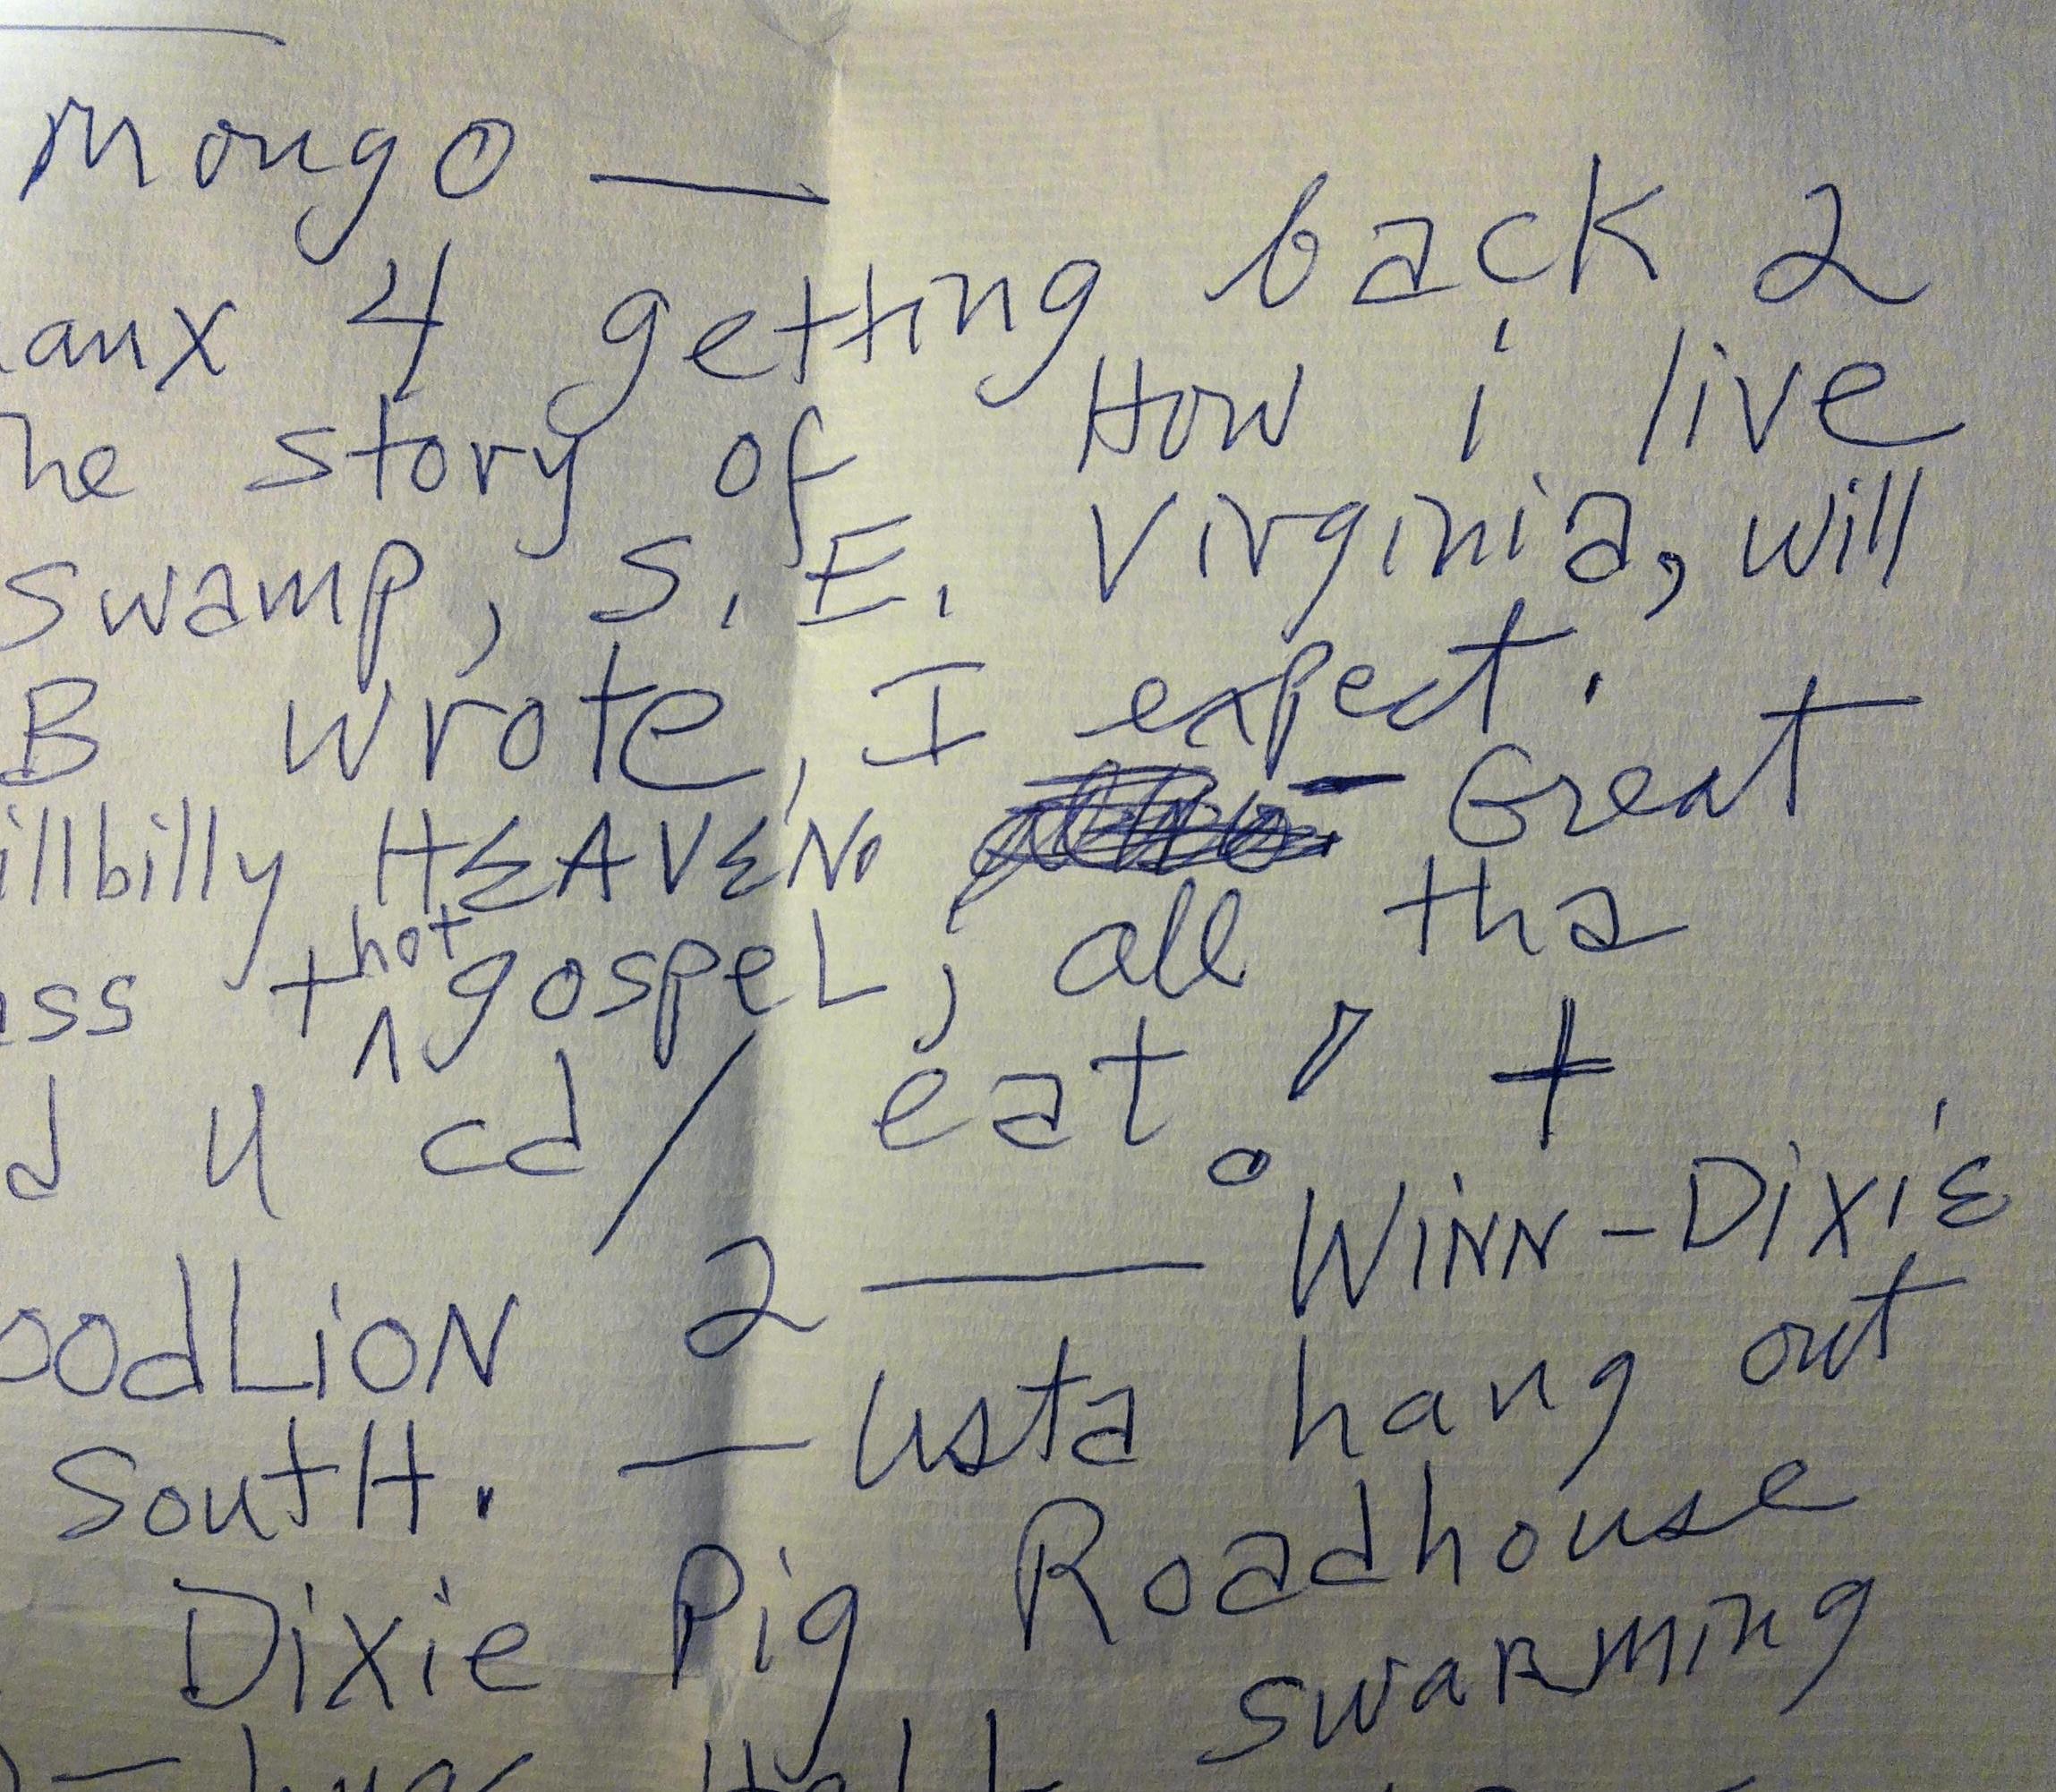 Mongo —
anx 4 getting back 2
he story of How i live
swamp, S.E. Virginia, will
B wrote, I expect.
illbilly HEAVEN. — Great
ss + hot gospeL, all tha
d 4 cd/ eat. +
oodLioN 2 — WiNN-DixiE
SoutH. — usta hang out
Dixie Pig Roadhouse
swaRming